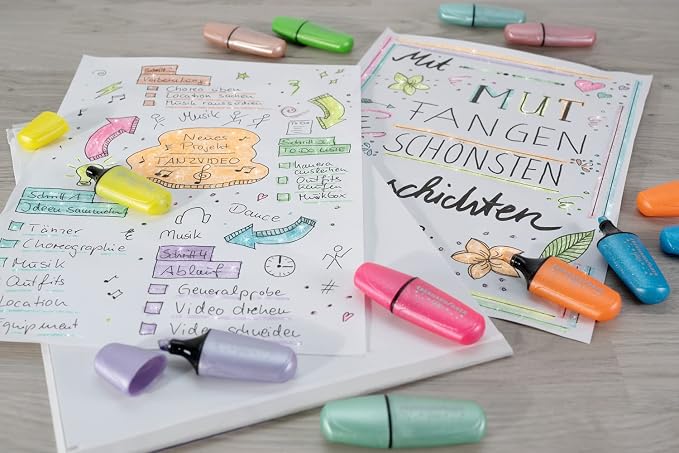 Schritt 2
Vorbereitung
Choreo üben
Location suchen
Musik raussuchen
Neues
Projekt
TANZVIDEO
TO DO LISTE
Kamera
ausleihen
Outfits
kaufen
Musikbox
Schritt 1
Ideen sammeln
Tänzer
Choreographie
Musik
Outfits
Location
Equipment
Musik
Dance
Schritt 4
Ablauf
Generalprobe
Video drehen
Video schneiden
Mit
MUT
FANGEN
SCHÖNSTEN
chichten